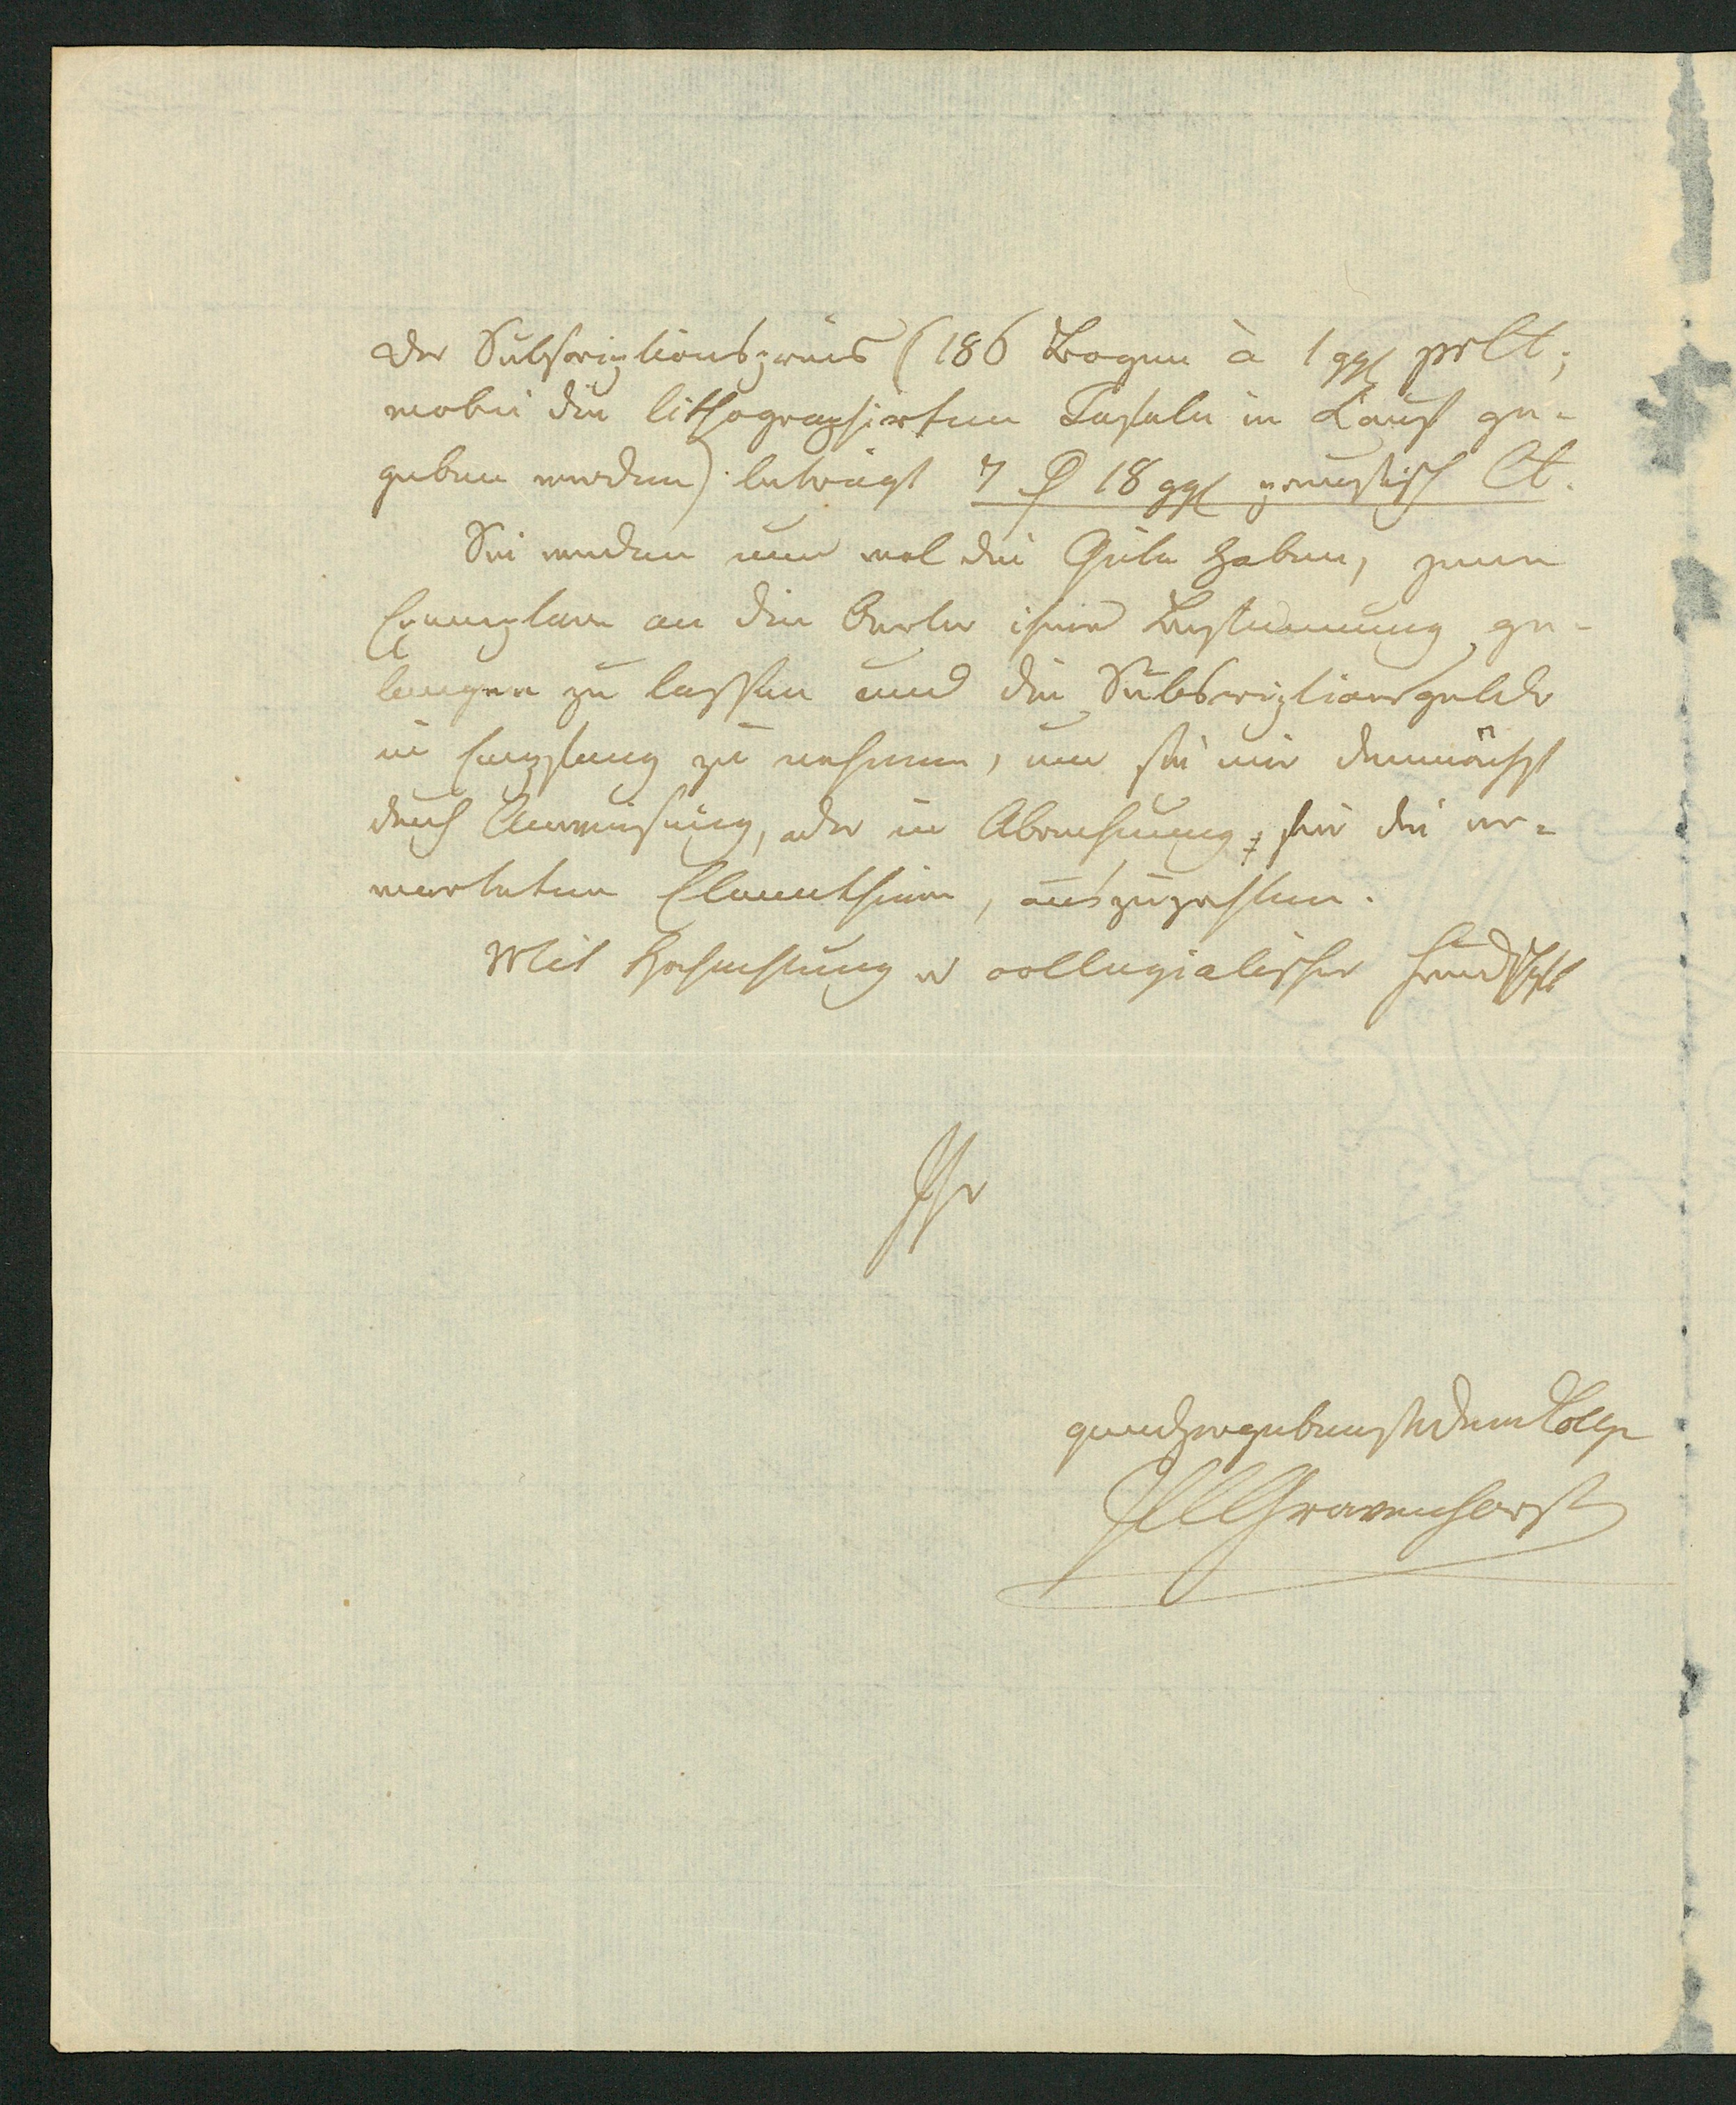 Der Subscriptionspreis (186 Bogen à 1 ggl prCt;
wobei die lithographirten Tafeln in Kauf ge-
geben werden) beträgt 7 ₰ 18 ggl preussisch Ct.
Sie werden nun wol die Güte haben, jene
Exemplare an die Oerter ihrer Bestimmung ge-
langen zu lassen und die Subscriptionsgelder
in Empfang zu nehmen, um sie mir demnächst
durch Anweisung, oder in Abrechnung für die er-
warteten Elenthiere, auszuzahlen.
Mit Hochachtung u collegialischer Freundschft
Ihr
ganz ergebenster
Gravenhorst